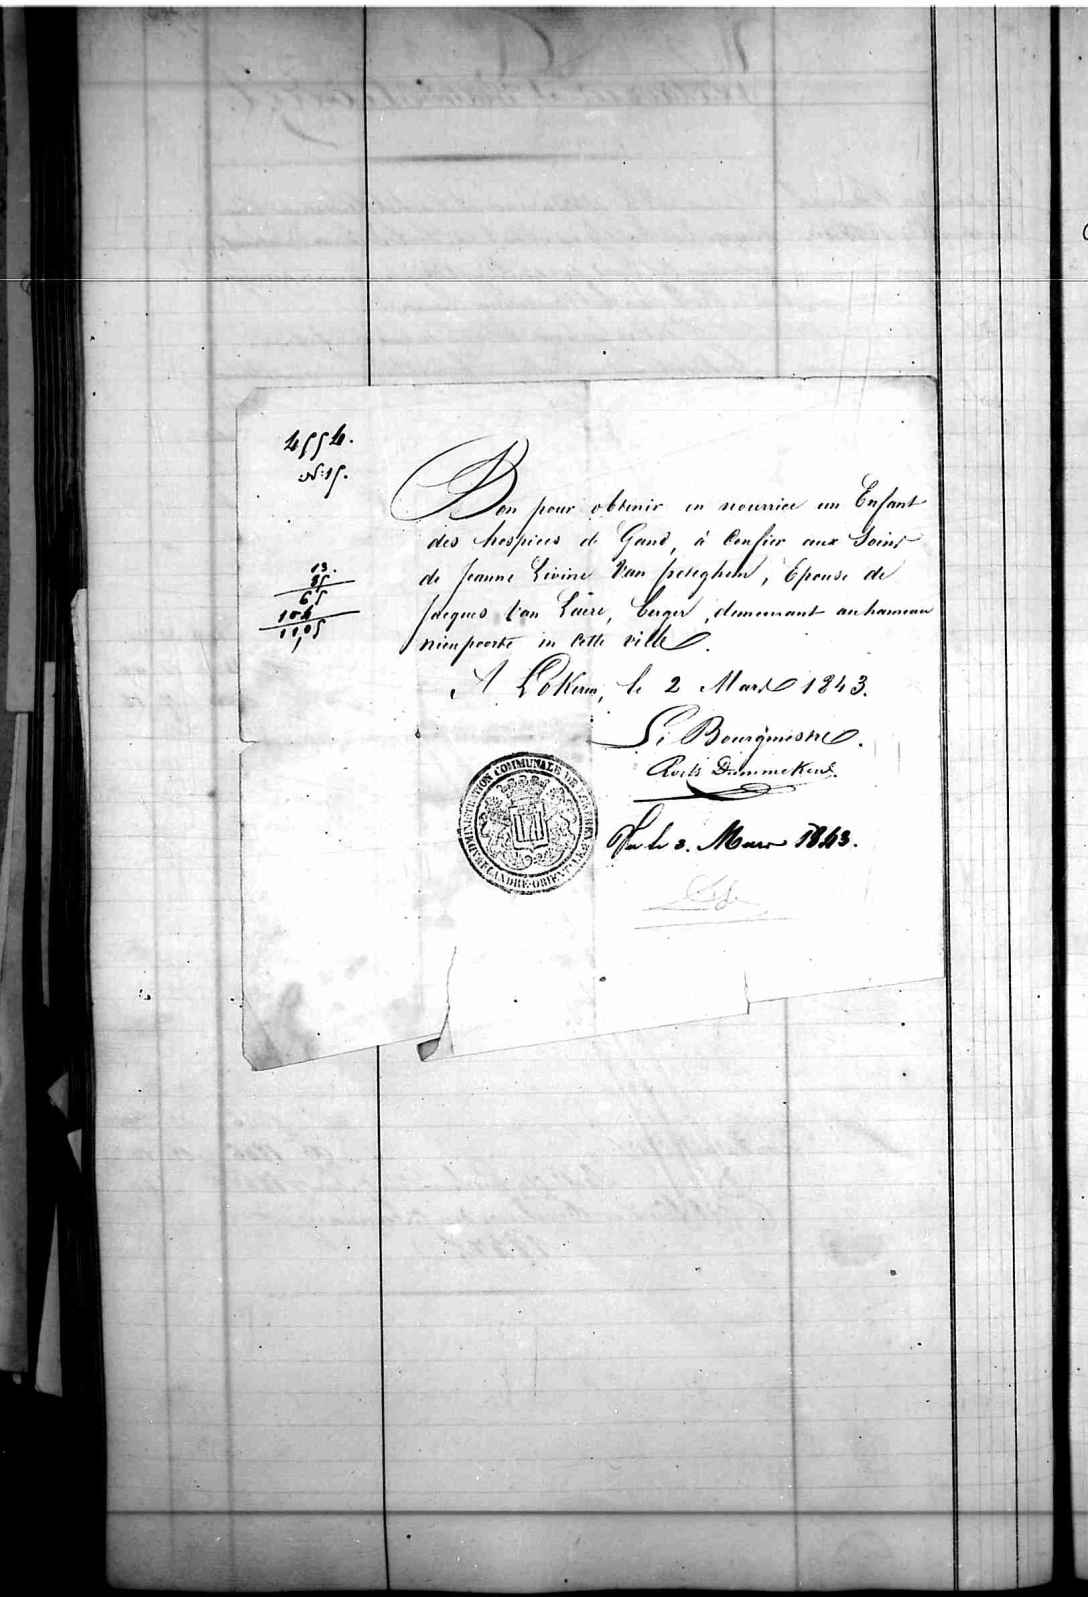 4554.
N: 15.
13.
85
65
104
11,05
Bon pour obtenir en nourrice un Enfant
des hospices de Gand, à Confier aux Soins
de Jeanne Livine Van peteghem, Epouse de
Jacques Van Laere, berger, demeurant au hameau
nieupoorte en Cette ville.
A Lokeren, le 2 Mars 1843.
Le Bourgmestre.
Roels Dammekens.
Vu le 3. Mars 1843.
ADMINISTRATION COMMUNALE DE LOKEREN
FLANDRE-ORIENTALE